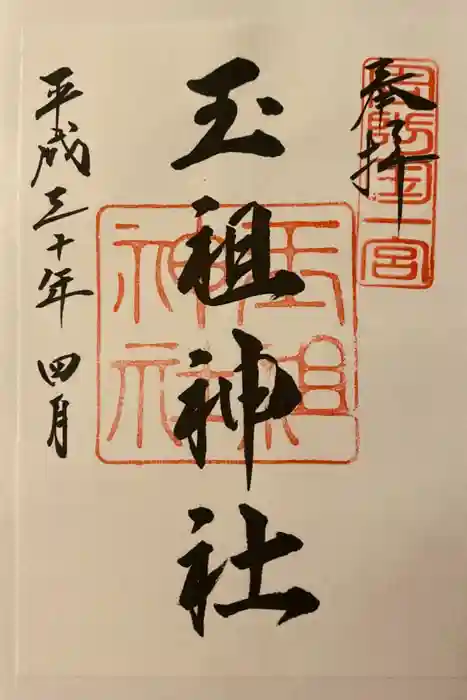 奉拝
周防国一宮
玉祖神社
玉祖神社
平成三十年四月